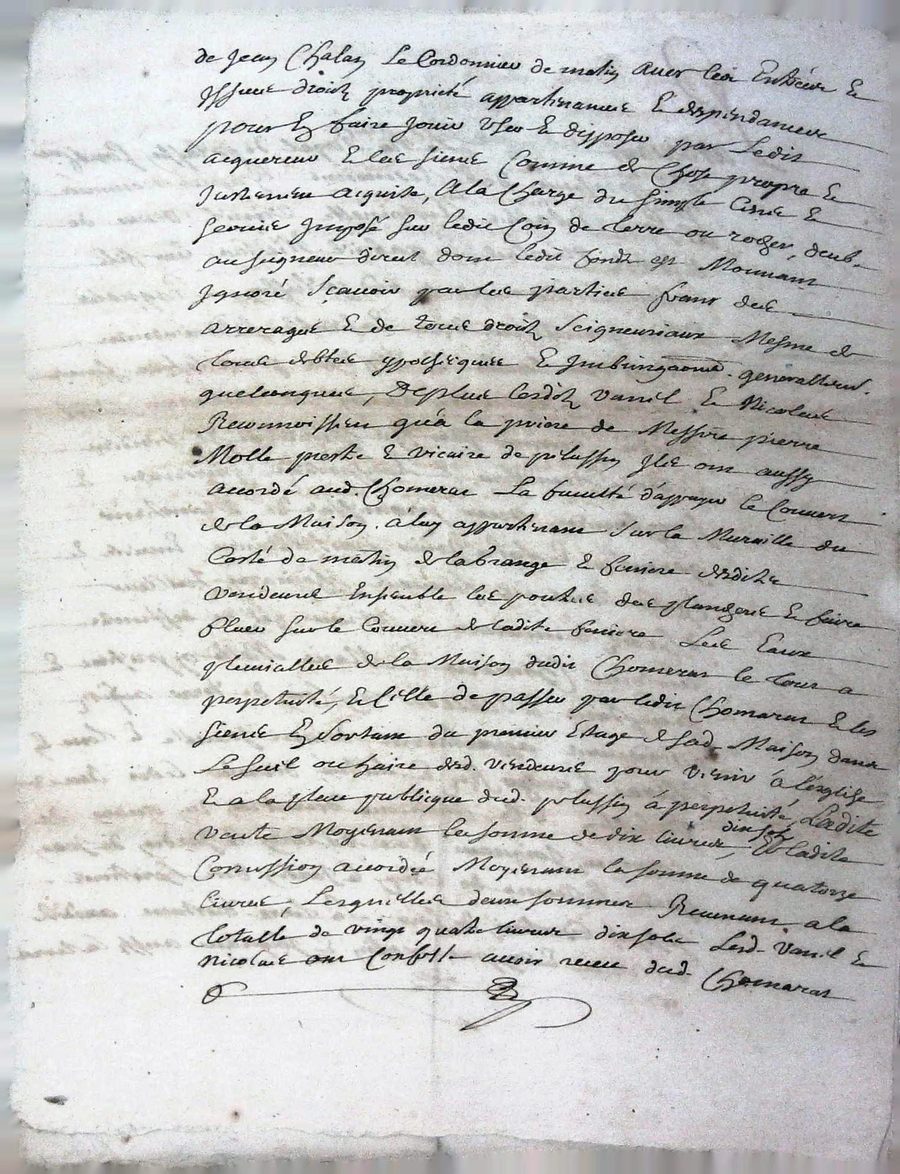 de Jean Chalan Le Cordonnier de matin avec les Entrées Et
Issues droitz propriété appartenances Et dependances
pour En faire Jouir User Et disposer par Ledit
acquereur Et les siens Comme de Chose propre Et
Justement acquise, A la Charge du simple Cens Et
servis Imposé sur ledit Coin de terre ou rocher, deub
au seigneur direct dont ledit fondz est Mouvant
Ignoré Sçavoir par les parties franc des
arrerages Et de tous droitz seigneuriaux Mesme de
tous debtes ypotheques Et generallement
quelconques, De plus lesditz Vanel Et Nicolas
Reconnoissent qu'à la priere de Messire pierre
Molle prestre Et vicaire de pelussin Ils ont aussy
accordé aud. Chomarat La faculté d'appuyer le Couvert
de la Maison à luy appartenant sur la Muraille du
Costé de matin de la grange Et feniere desdits
vendeurs Ensemble les de faire
fluer sur le Couvert de ladite feniere Les Eaux
pluvialles de la Maison dudit Chomarat le tout a
perpetuité, Et Celle de passer par ledit Chomarat Et les
siens En sortant du premier Estage de sad. Maison dans
Le Suil ou haire desd. vendeurs pour venir à l'eglise
Et a la place publique dud. pelussin à perpetuité, Ladite
vente Moyenant la somme de dix livres dix solz, Et ladite
Concession accordée Moyenant la somme de quatorze
livres, Lesquelles deux sommes Revenant a la
totalle de vingt quatre livres dix solz Lesd. Vanel Et
Nicolas ont Confessé avoir receu dud. Chomarat